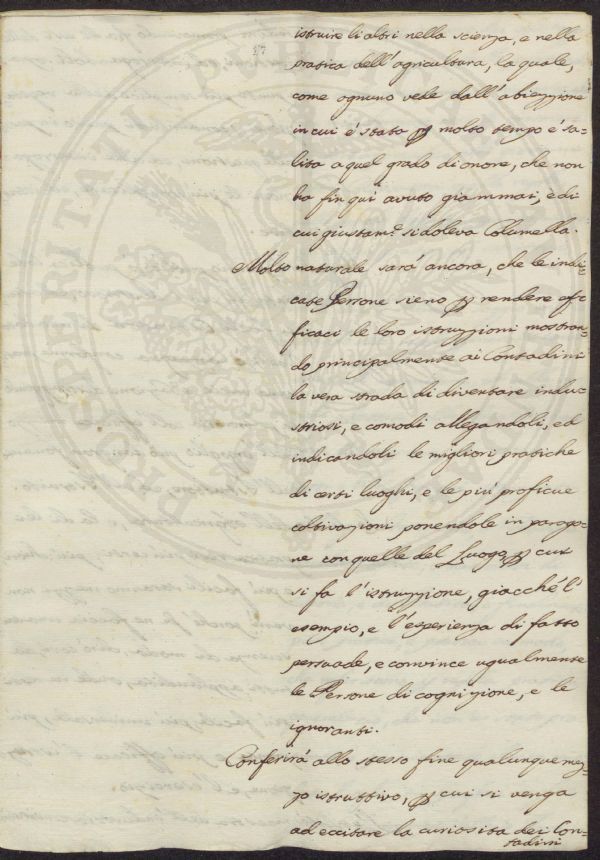 istruire li altri nella scienza, e nella
pratica dell'agricultura, la quale,
come ognuno vede dall'abiezzione
in cui é stata ꝑ molto tempo é sa-
lita a quel grado di onore, che non
ha fin qui avuto giammai, e di
cui giustam.e si doleva Columella.
Molto naturale sará ancora, che le indi-
cate Persone sieno ꝑ rendere ef-
ficaci le loro istruzzioni mostran-
do principalmente ai Contadini
la vera strada di diventare indu-
striosi, e comodi allegandoli, ed
indicandoli le migliori pratiche
di certi luoghi, e le piú proficue
coltivazioni ponendole in parago-
ne con quelle del Luogo, ꝑ cui
si fa l'istruzzione, giacché l'
esempio, e l'esperienza di fatto
persuade, e convince ugualmente
le Persone di cognizione, e le
ignoranti.
Conferirá allo stesso fine qualunque mez-
zo istruttivo, ꝑ cui si venga
ad eccitare la curiosita dei Con-
tadini
PROSPERITATI PUBLICAE